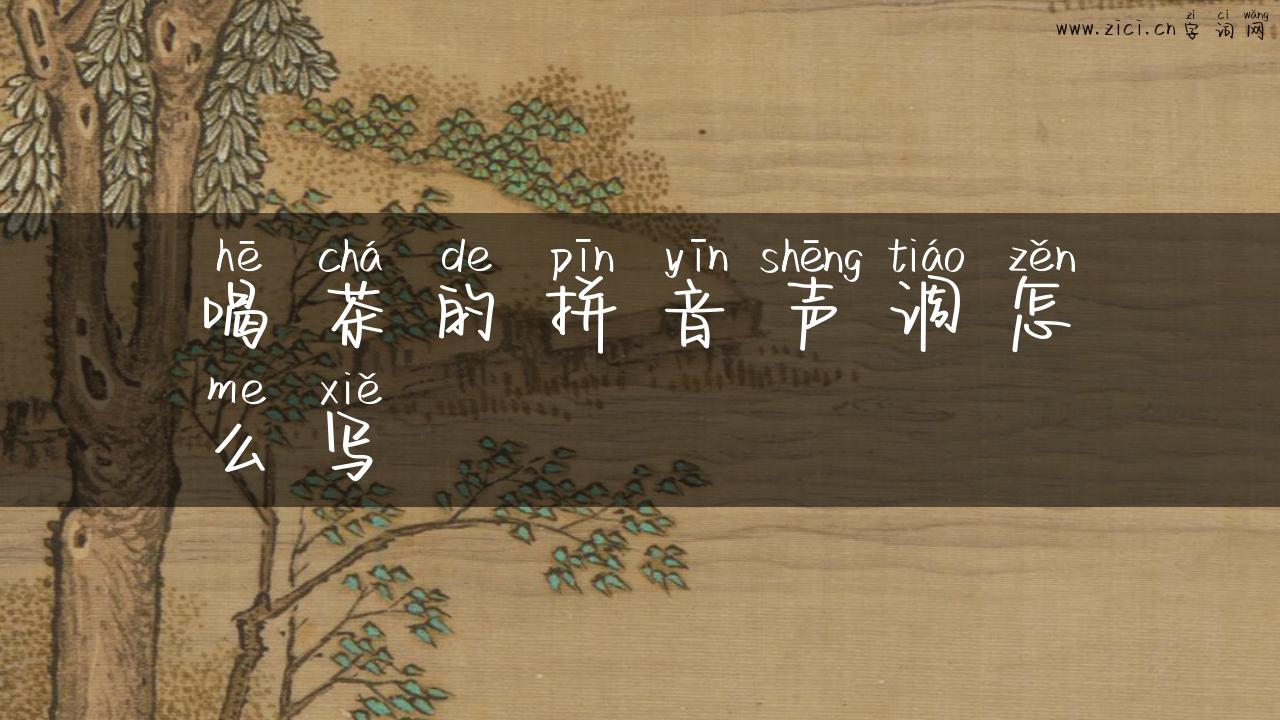 zì cí wǎng
www.zici.cn 字词网
hē chá de pīn yīn shēng tiáo zěn
喝茶的拼音声调怎
me xiě
么写